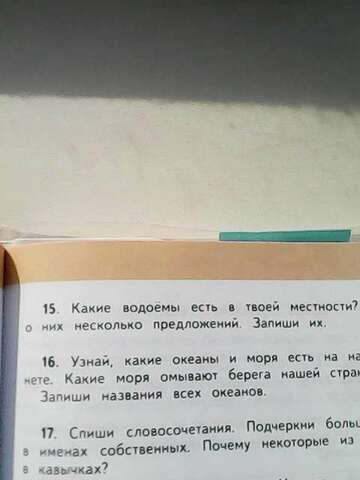 15. Какие водоёмы есть в твоей местности?
о них несколько предложений. Запиши их.
16. Узнай, какие океаны и моря есть на на
нете. Какие моря омывают берега нашей стран
Запиши названия всех океанов.
17. Спиши словосочетания. Подчеркни боль
в именах собственных. Почему некоторые из
в кавычках?